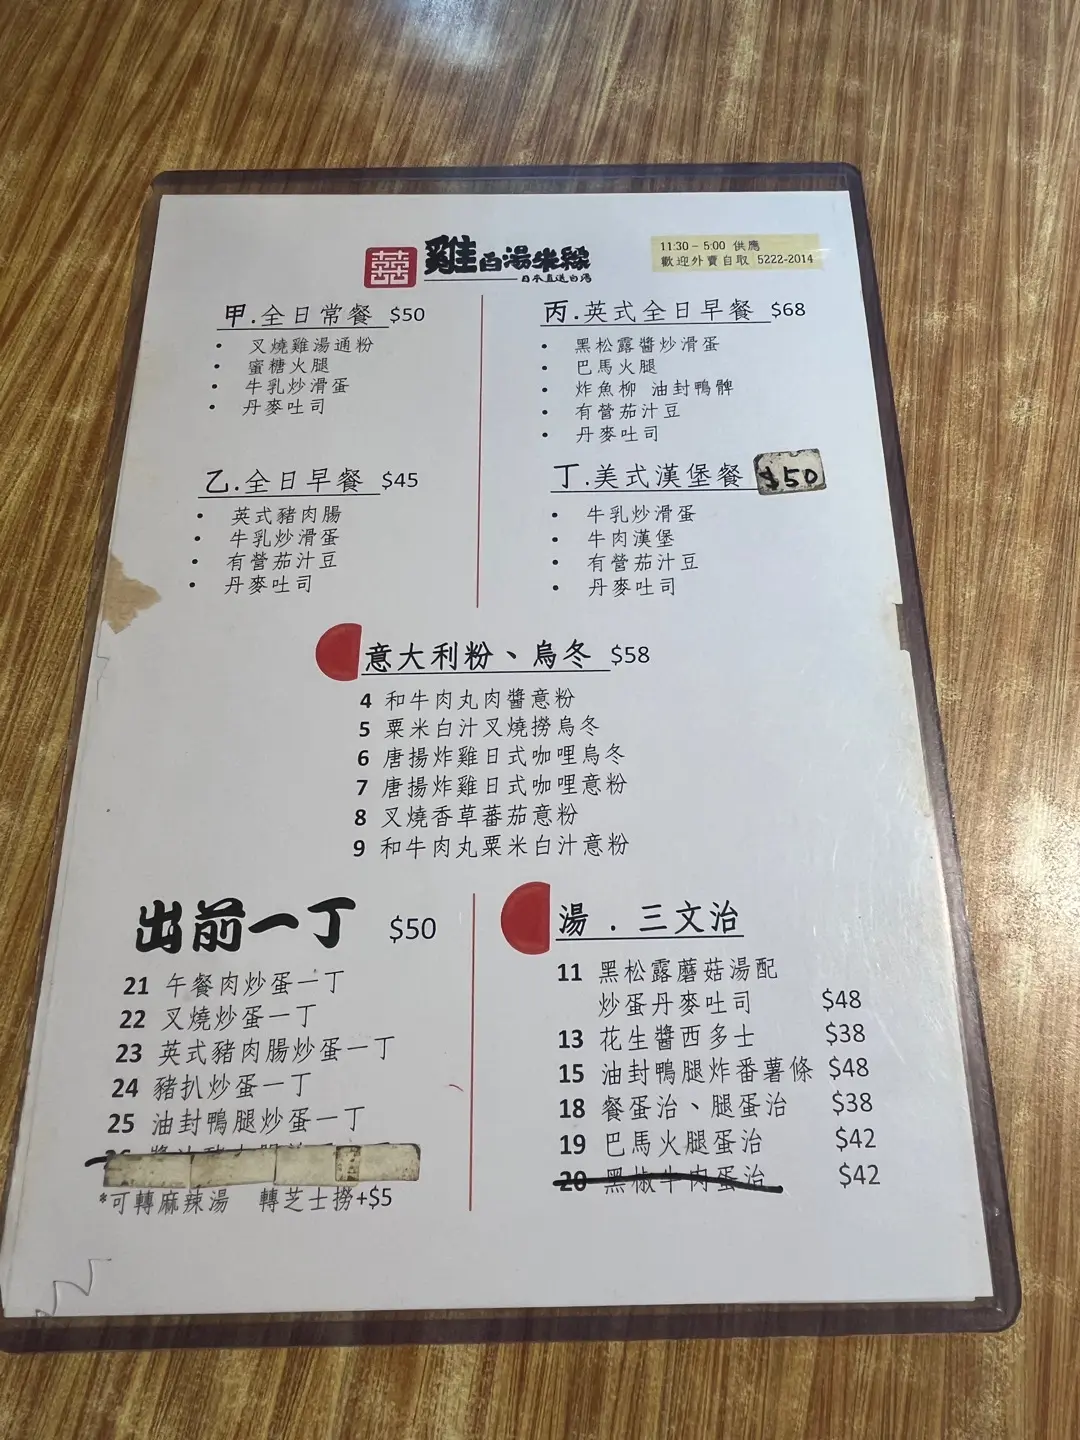 囍 雞白湯米線
日本直送白湯
11:30 – 5:00 供應
歡迎外賣自取 5222-2014
甲.全日常餐 $50
• 叉燒雞湯通粉
• 蜜糖火腿
• 牛乳炒滑蛋
• 丹麥吐司
丙.英式全日早餐 $68
• 黑松露醬炒滑蛋
• 巴馬火腿
• 炸魚柳 油封鴨髀
• 有營茄汁豆
• 丹麥吐司
乙.全日早餐 $45
• 英式豬肉腸
• 牛乳炒滑蛋
• 有營茄汁豆
• 丹麥吐司
丁.美式漢堡餐 $50
• 牛乳炒滑蛋
• 牛肉漢堡
• 有營茄汁豆
• 丹麥吐司
意大利粉、烏冬 $58
4 和牛肉丸肉醬意粉
5 粟米白汁叉燒撈烏冬
6 唐揚炸雞日式咖哩烏冬
7 唐揚炸雞日式咖哩意粉
8 叉燒香草蕃茄意粉
9 和牛肉丸粟米白汁意粉
出前一丁 $50
21 午餐肉炒蛋一丁
22 叉燒炒蛋一丁
23 英式豬肉腸炒蛋一丁
24 豬扒炒蛋一丁
25 油封鴨腿炒蛋一丁
*可轉麻辣湯 轉芝士撈+$5
湯 . 三文治
11 黑松露蘑菇湯配
炒蛋丹麥吐司 $48
13 花生醬西多士 $38
15 油封鴨腿炸番薯條 $48
18 餐蛋治、腿蛋治 $38
19 巴馬火腿蛋治 $42
20 黑椒牛肉蛋治 $42